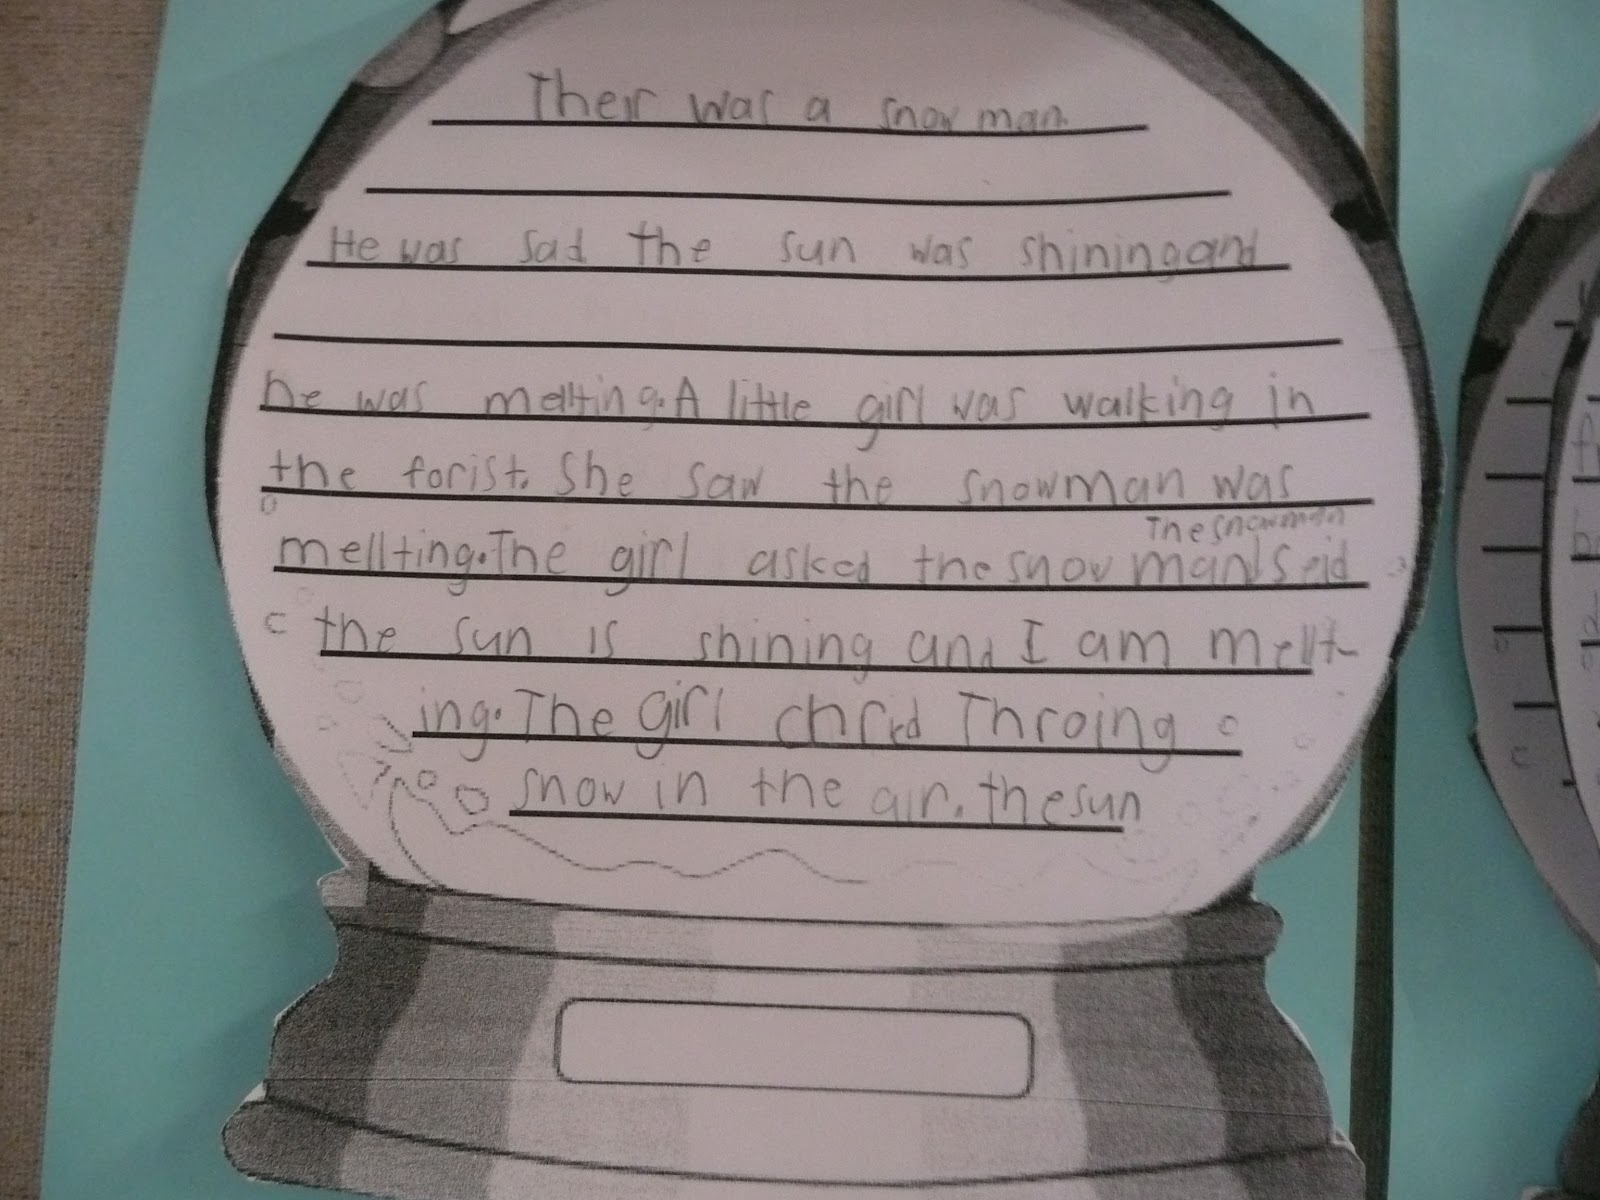 Their was a snow man.
He was sad the sun was shining and
he was mellting. A little girl was walking in
the forist. She saw the snowman was
mellting. The girl asked the snow man
The snowman
Seid
the sun is shining and I am mellt-
ing. The girl Throing
snow in the air. the sun